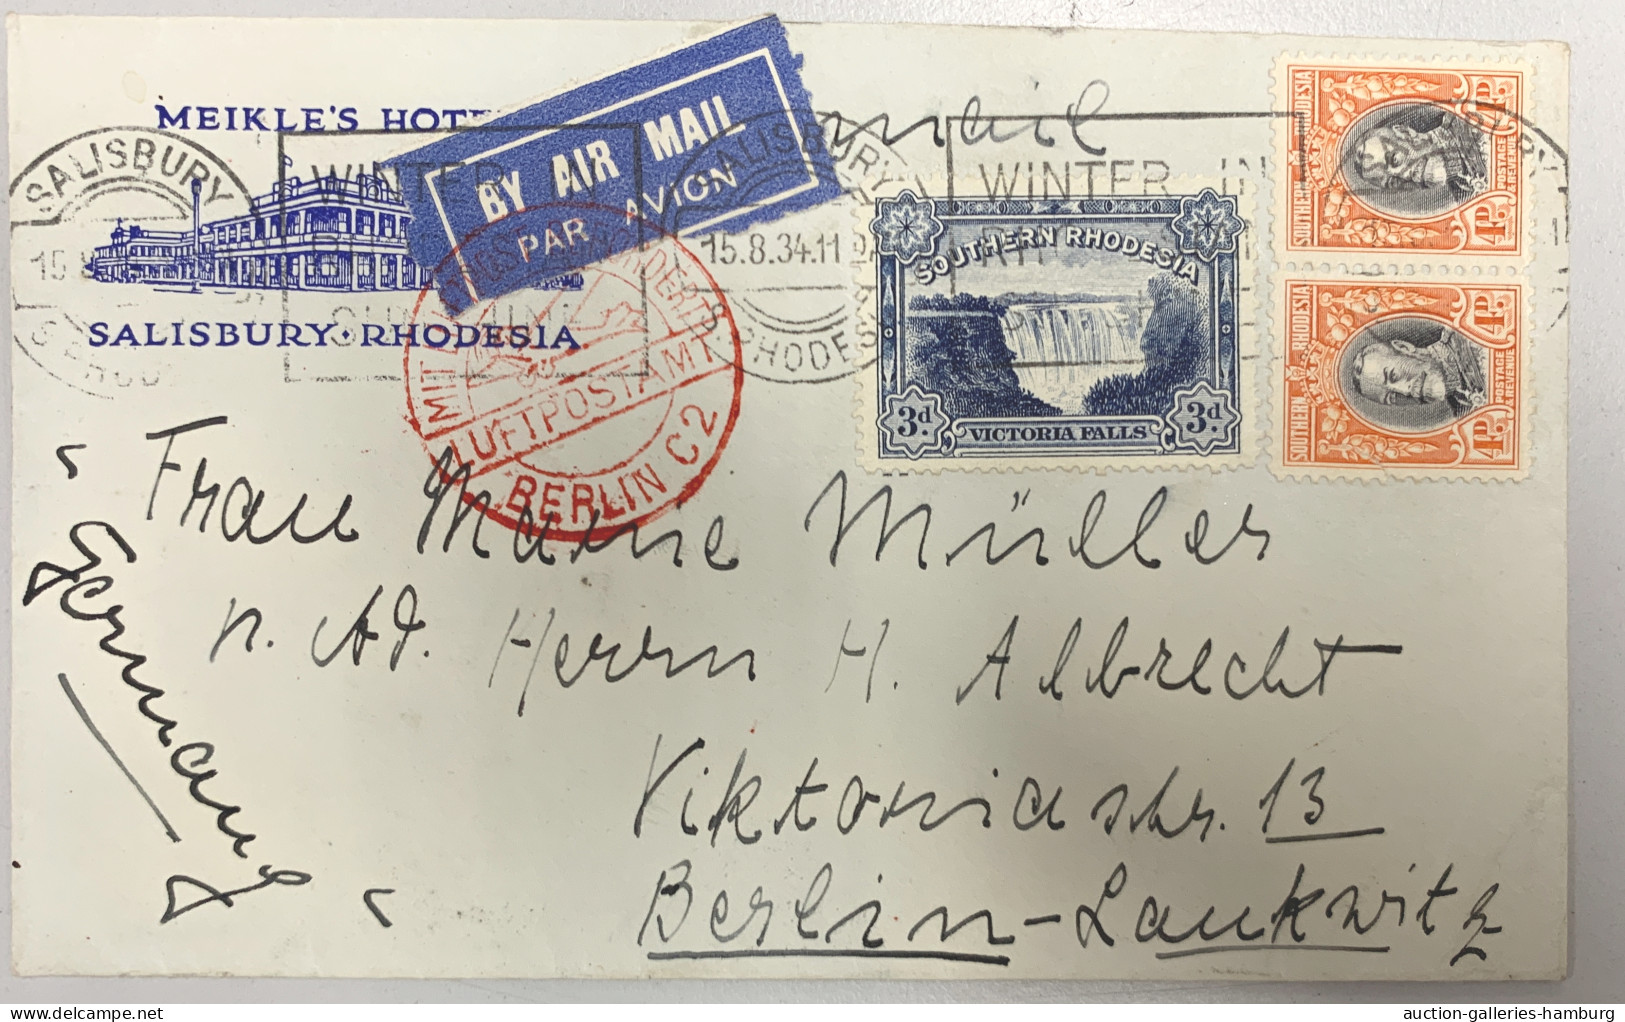 MEIKLE'S HOTE
SALISBURY · RHODESIA
BY AIR MAIL
PAR AVION
mail
SALISBURY
15.8.34.11
S. RHODESIA
WINTER IN
SUNSHINE
SALISBURY
S. RHODES
WINTER IN
MIT LUFTPOST BEFÖRDERT
LUFTPOSTAMT
BERLIN C2
SOUTHERN RHODESIA
3d. 3d.
VICTORIA FALLS
SOUTHERN RHODESIA
POSTAGE & REVENUE
4D. 4D.
SOUTHERN RHODESIA
POSTAGE & REVENUE
4D. 4D.
Frau Marie Müller
n. Ad. Herrn H. Albrecht
Viktoriastr. 13
Berlin-Lankwitz
"Germany"
auction-galleries-hamburg